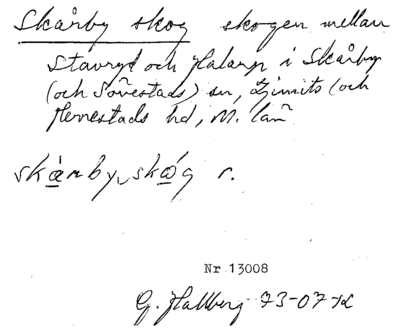 Skårby skog skogen mellan
Stavryd och Halang i Skårby
(och Sövestads) sn, Ljunits (och
Herrestads hd, M. län
skårby skog r.
Nr 13008
G. Hallberg 73-07-12